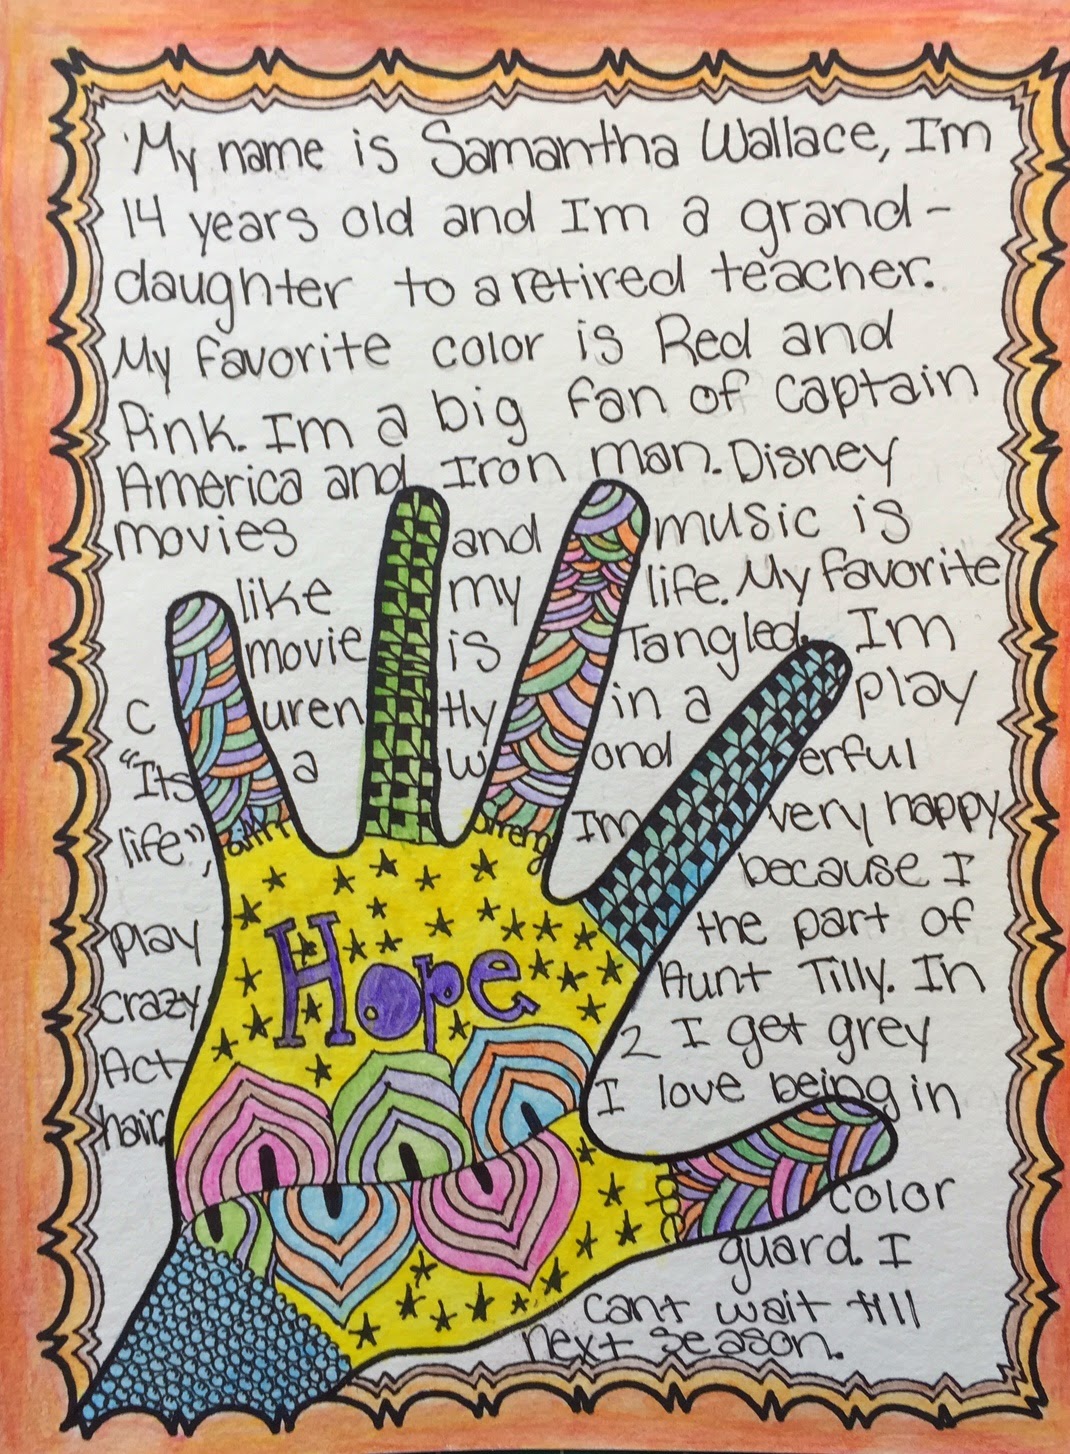 My name is Samantha Wallace, I'm
14 years old and I'm a grand-
daughter to a retired teacher.
My favorite color is Red and
Pink. Im a big fan of Captain
America and Iron man. Disney
movies and music is
like my life. My favorite
movie is Tangled. Im
c uren tly in a play
"Its a w ond erful
life", Im very happy
because I
play the part of
crazy Aunt Tilly. In
Act 2 I get grey
hair. I love being in
color
guard. I
cant wait till
next season.
Hope